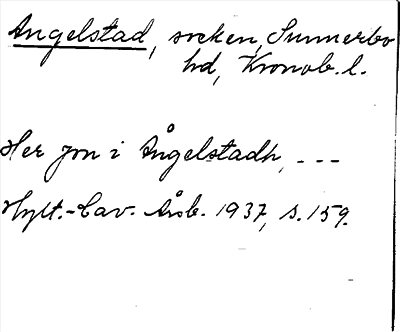 Angelstad, socken, Sunnerbo
hd, Kronob. l.
Her jon i Ångelstadh, ---
Hylt.-Cav. Årsb. 1937, s. 159.